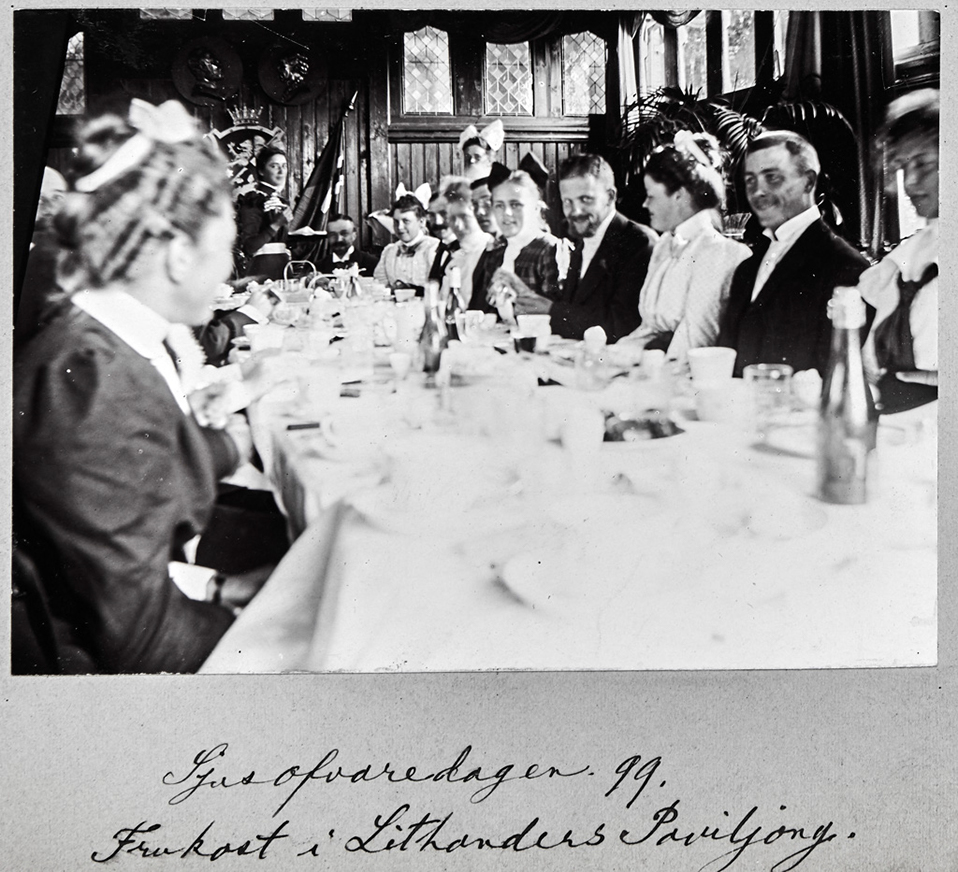 Sjusofvaredagen. 99.
Frukost i Lithanders Paviljong.